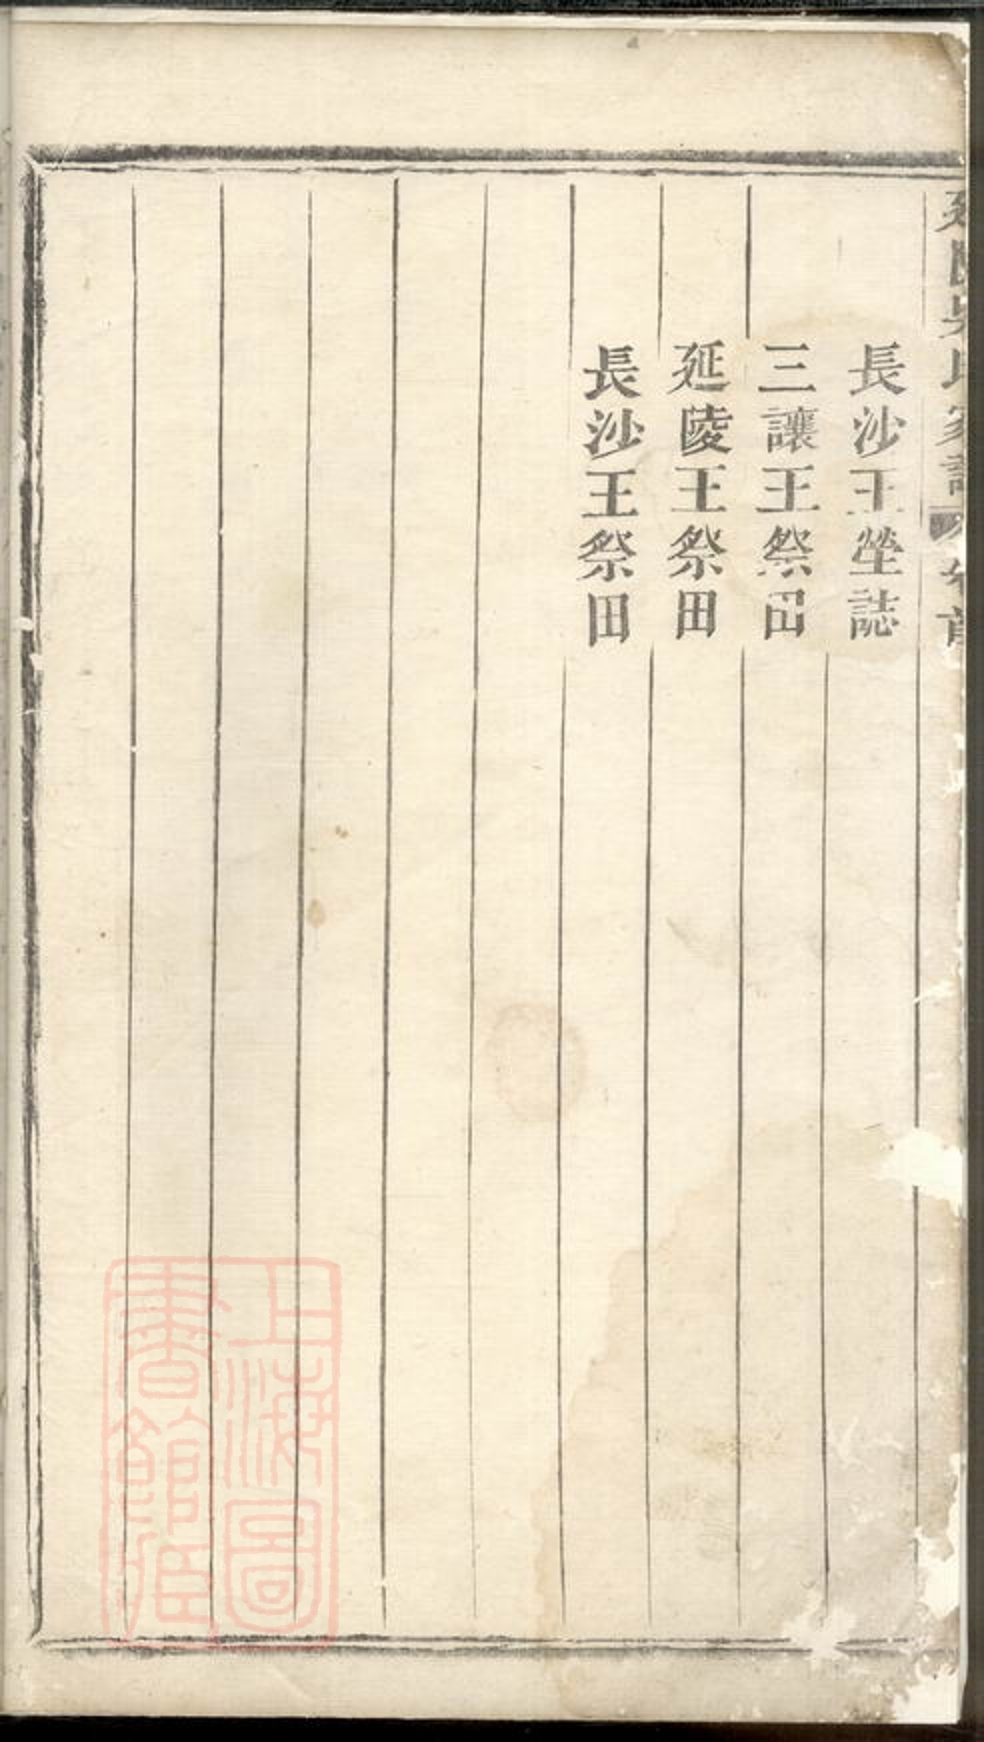 延陵吳氏家譜 卷首
長沙王塋誌
三讓王祭田
延陵王祭田
長沙王祭田
上海圖書館藏